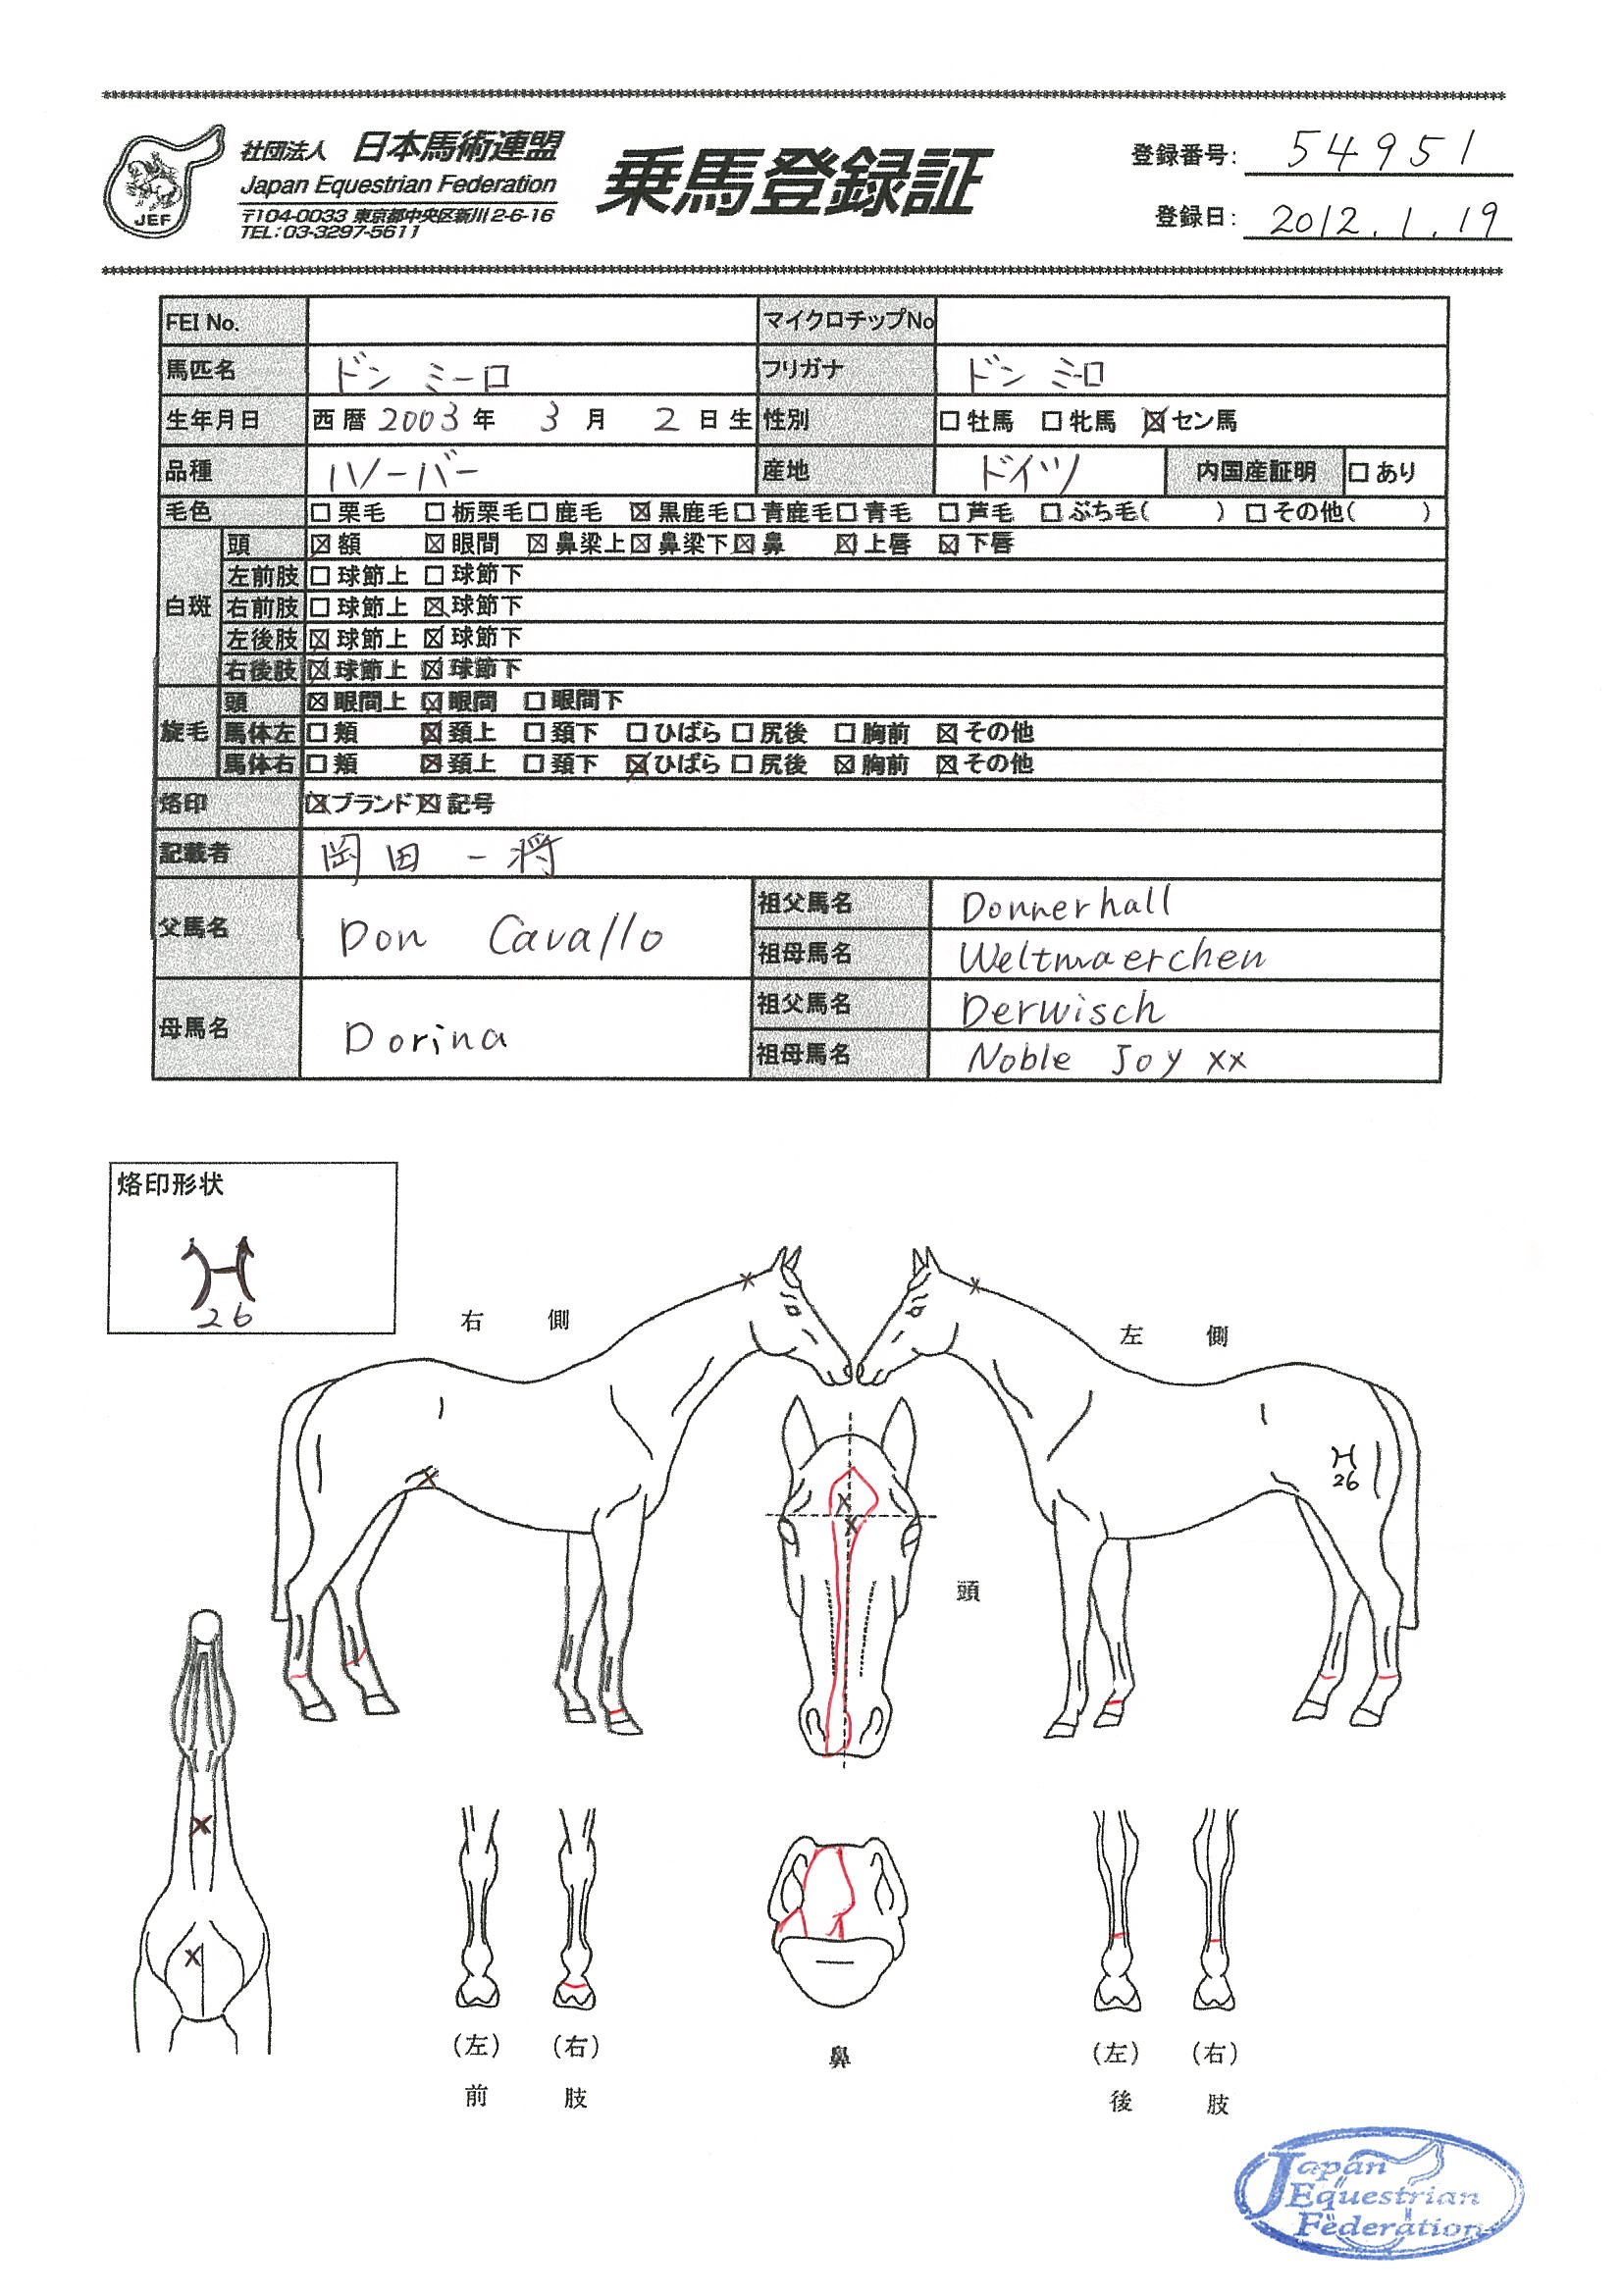 社団法人 日本馬術連盟
Japan Equestrian Federation
〒104-0033 東京都中央区新川2-6-16
TEL:03-3297-5611
JEF
乗馬登録証
登録番号: 54951
登録日: 2012.1.19
FEI No. マイクロチップNo
馬匹名 ドン ミーロ フリガナ ドン ミーロ
生年月日 西暦 2003 年 3 月 2 日生 性別 □牡馬 □牝馬 ☒セン馬
品種 ハノーバー 産地 ドイツ 内国産証明 □あり
毛色 □栗毛 □栃栗毛 □鹿毛 ☒黒鹿毛 □青鹿毛 □青毛 □芦毛 □ぶち毛( ) □その他( )
白斑 頭 ☒額 ☒眼間 ☒鼻梁上 ☒鼻梁下 ☒鼻 ☒上唇 ☒下唇
左前肢 □球節上 □球節下
右前肢 □球節上 ☒球節下
左後肢 ☒球節上 ☒球節下
右後肢 ☒球節上 ☒球節下
旋毛 頭 ☒眼間上 ☒眼間 □眼間下
馬体左 □頬 ☒頚上 □頚下 □ひばら □尻後 □胸前 ☒その他
馬体右 □頬 ☒頚上 □頚下 ☒ひばら □尻後 ☒胸前 ☒その他
烙印 ☒ブランド ☒記号
記載者 岡田 一将
父馬名 Don Cavallo 祖父馬名 Donnerhall
祖母馬名 Weltmaerchen
母馬名 Dorina 祖父馬名 Derwisch
祖母馬名 Noble Joy xx
烙印形状
H
26
右側
左側
H
26
頭
(左) (右)
前 肢
鼻
(左) (右)
後 肢
Japan
Equestrian
Federation